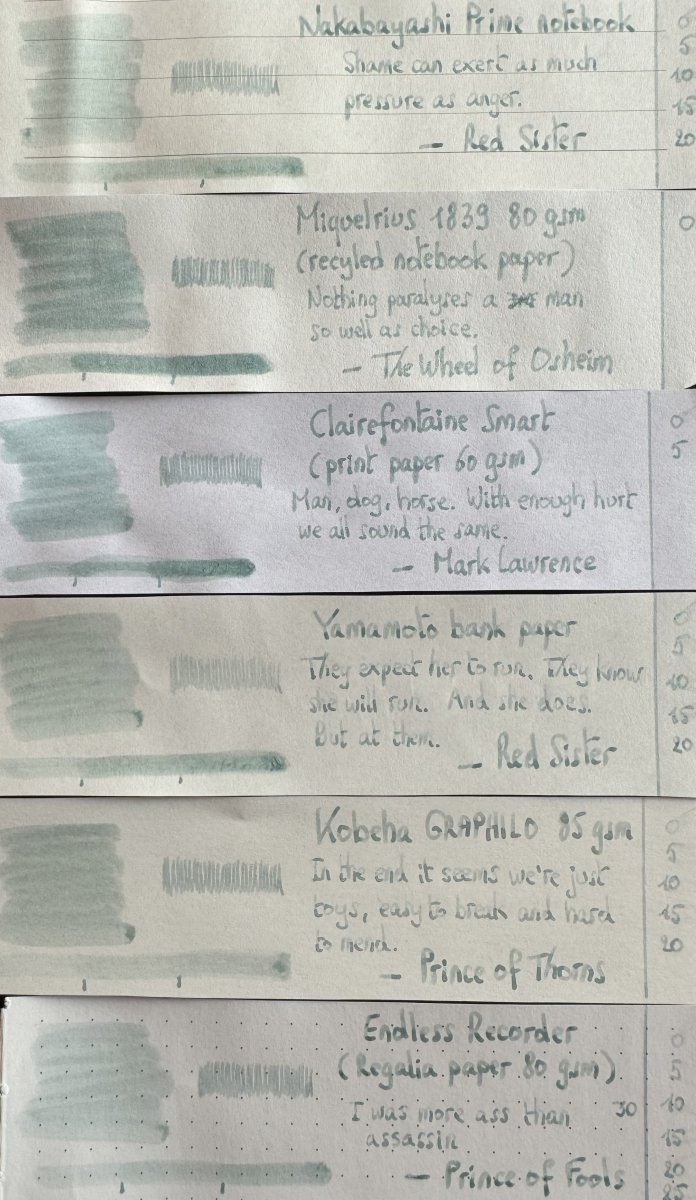 Nakabayashi Prime notebook
Shame can exert as much
pressure as anger.
— Red Sister
0
5
10
15
20
Miquelrius 1839 80 gsm
(recyled notebook paper)
Nothing paralyses a man
so well as choice.
— The Wheel of Osheim
0
Clairefontaine Smart
(print paper 60 gsm)
Man, dog, horse. With enough hurt
we all sound the same.
— Mark Lawrence
0
5
Yamamoto bank paper
They expect her to run. They know
she will run. And she does.
But at them.
— Red Sister
0
5
10
15
20
Kobeha GRAPHILO 85 gsm
In the end it seems we're just
toys, easy to break and hard
to mend.
— Prince of Thorns
0
5
10
15
20
Endless Recorder
(Regalia paper 80 gsm)
I was more ass than
assassin
— Prince of Fools
30
0
5
10
15
20
25